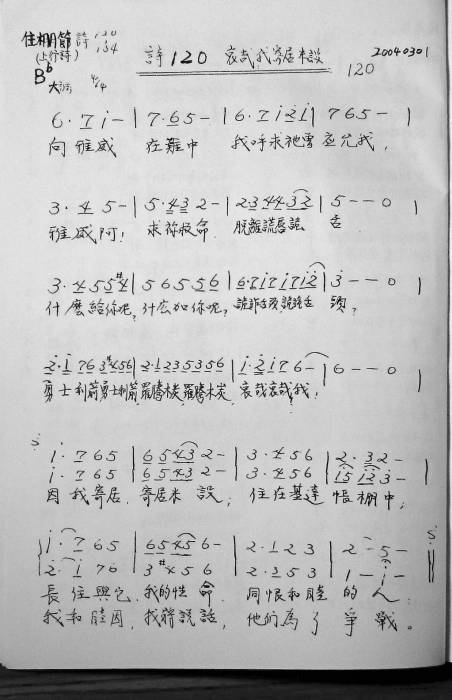 住棚節 詩 120
(上行詩) 134
詩120 哀哉我寄居米設
20040301
120
B♭ 大調 4/4
6· 7 i - | 7· 6 5 - | 6· 7 i 2 i | 7 6 5 - |
向雅威 在難中 我呼求祂曾应允我,
3· 4 5 - | 5· 4 3 2 - | 2· 3 4 4 3 2 | 5 - - 0 |
雅威阿! 求祢救命 脫離謊唇詭舌
3· 4 5 5 #4 | 5 6 5 5 6 | 6· 7 i 7 i 7 i 2 | 3 - - 0 |
什麼給你呢, 什么加你呢, 頭?
2· i 7 6 3 #4 5 6 | 2· 1 2 3 5 3 5 6 | i· 2 i 7 6 - | 6 - - 0 |
勇士利箭勇士利箭 羅騰木炭羅騰木炭 哀哉哀哉我!
i· 7 6 5 | 6 5 4 3 2 - | 3· 4 5 6 | 2· 3 2 - |
i· 7 6 5 | 6 5 4 3 2 - | 3· 4 5 6 | i 5 i 2 3 - |
因我寄居 寄居米設; 住在基達帳棚中;
i· 7 6 5 | 6 5 4 5 6 - | 2· 1 2 3 | 2 - 5 - |
2· i 7 6 | 3 #4 5 6 | 2· 3 5 3 | 1 - i - |
長住與它 我的性命 同恨和睦的人
我和睦因 我將說話, 他們為了爭戰。